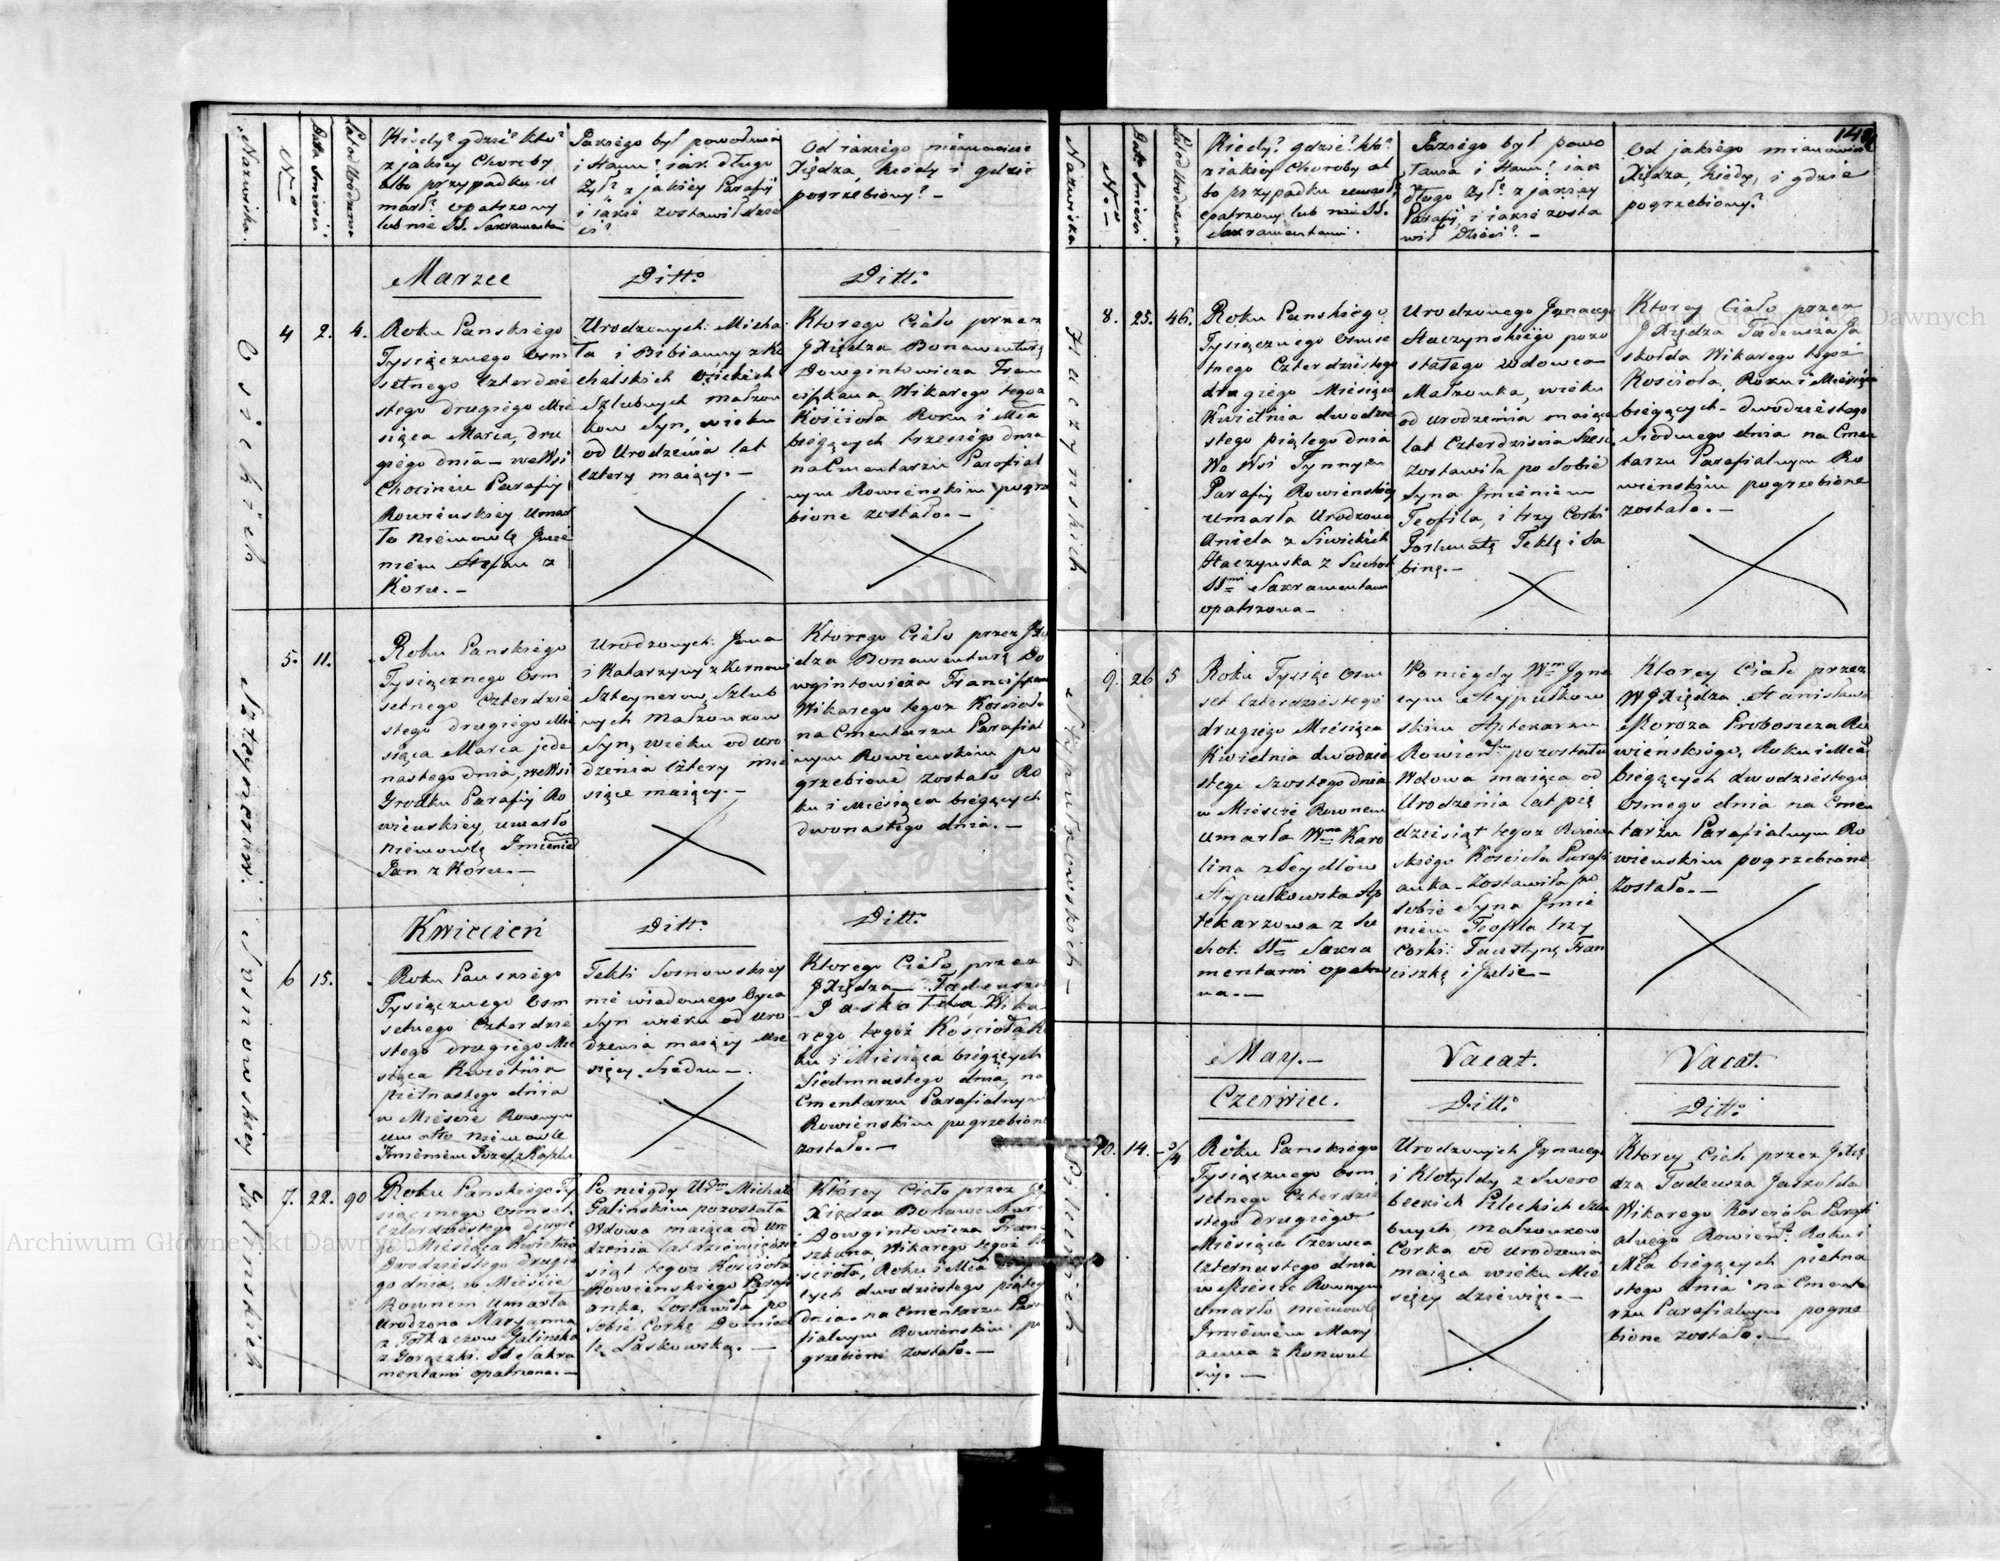 Nazwiska.
Nro
Data Smierci.
Lat od Urodzenia
Kiedy? gdzie? kto?
z jakiey Choroby
albo przypadku u
marł? opatrzony
lub nie SS. Sakramentami
Jakiego był powołania
i Stanu? jak długo
żył? z jakiey Parafij
i jakie zostawił dzie
ci?
Od jakiego mianowicie
Xiędza, kiedy i gdzie
pogrzebiony? –
Marzec
Ditto
Ditto
Osickich
4
2.
4.
Roku Panskiego
Tysiącznego Osm
setnego Czterdzie
stego drugiego Mie
siąca Marca, dru
giego dnia – we Wsi
Chocinie Parafij
Rowienskiey Umar
ło Niemowlę Jmie
niem Stefan z
Koru. –
Urodzonych: Micha
ła i Bibianny z Mi
chalskich Osickich
Szlubnych Małżon
kow Syn, wieku
od Urodzenia lat
cztery maiący. –
Ktorego Ciało przez
J Xiędza Bonawenturę
Dowgintowicza Fran
ciszkana Wikarego tegoż
Kościoła Roku i Mca
bieżących trzeciego dnia
na Cmentarzu Parafial
nym Rowienskim pogrze
bione zostało. –
Szteynerow.
5.
11.
Roku Panskiego
Tysiącznego Osm
setnego Czterdzie
stego drugiego Mie
siąca Marca jede
nastego dnia, we Wsi
Grodku Parafij Ro
wienskiey, umarło
niemowlę Jmieniem
Jan z Koru. –
Urodzonych: Jana
i Katarzyny z
Szteynerow, Szlub
nych Małżonkow
Syn, wieku od Uro
dzenia Cztery mie
siące maiący. –
Ktorego Ciało przez JXię
dza Bonawenturę Do
wgintowicza Franciszkana
Wikarego tegoż Kościoła
na Cmentarzu Parafial
nym Rowienskim po
grzebione zostało Ro
ku i Miesiąca bieżących
dwonastego dnia. –
Kwiecień
Ditto
Ditto
Sosnowskiey
6
15.
Roku Panskiego
Tysiącznego Osm
setnego Czterdzie
stego drugiego Mie
siąca Kwietnia
pietnastego dnia
w Mieście Rownym
umarło niemowle
Jmieniem Jozef z Kaszlu
Tekli Sosnowskiey
nie wiadomego Oyca
Syn wieku od Uro
dzenia maiący Mie
sięcy Siedm –.
Ktorego Ciało przez
J Xiędza – Tadeusza
Jaskołda Wika
rego tegoż Kościoła Ro
ku i Miesiąca bieżących
Siedmnastego dnia, na
Cmentarzu Parafialnym
Rowienskim pogrzebione
zostało. –
Galinskich
7.
22.
90
Roku Panskiego Ty
siącznego Osmset
Czterdziestego drugie
go Miesiąca Kwietnia
Dwudziestego drugie
go dnia, w Mieście
Rownem Umarła
Urodzona Maryanna
z Tołkaczow Galinska
z Gorączki SS Sakra
mentami opatrzona. –
Po niegdy Urm Michale
Galinskim pozostała
Wdowa maiąca od Uro
dzenia lat dziewięćdzie
siąt tegoż Kościoła
Rowienskiego Parafi
anka, Zostawiła po
sobie Corkę Domicel
lę Laskowską. –
Ktorey Ciało przez J
Xiędza Bonawenturę
Dowgintowicza Fran
ciszkana, Wikarego tegoż Ko
ścioła, Roku i Mca bieżą
cych dwudziestego piątego
dnia na Cmentarzu Para
fialnym Rowienskim po
grzebione zostało. –
149
Nazwiska
Nro
Data Smierci.
Lat od Urodzenia
Kiedy? gdzie? kto?
z jakiey Choroby al
bo przypadku umarł?
opatrzony lub nie SS.
Sakramentami.
Jakiego był powo
łania i Stanu? jak
długo żył? z jakiey
Parafij i jakie zosta
wił Dzieci? –
Od jakiego mianowicie
Xiędza, kiedy, i gdzie
pogrzebiony?
Haczynskich
8.
25.
46.
Roku Panskiego
Tysiącznego Osmse
tnego Czterdziestego
drugiego Miesiąca
Kwietnia dwudzie
stego piątego dnia
We Wsi Tynnym
Parafij Rowienskiey
umarła Urodzona
Aniela z Siwickich
Haczynska z Suchot
SSmi Sakramentami
opatrzona –
Urodzonego Jgnacego
Haczynskiego pozo
stałego Wdowca
Małżonka, wieku
od urodzenia maiąca
lat Czterdzieści Szesć
Zostawiła po Sobie
Syna Jmieniem
Teofila, i trzy Corki
Fortunatę Teklę i Sa
binę. –
Ktorey Ciało przez
J Xiędza Tadeusza Ja
skołda Wikarego tegoż
Kościoła, Roku i Miesiąca
bieżących – dwudziestego
siodmego dnia na Cmen
tarzu Parafialnym Ro
wienskim pogrzebione
zostało. –
Stypułkowskich –
9.
26
5
Roku Tysiąc Osm
set Czterdziestego
drugiego Miesiąca
Kwietnia dwudzie
stego Szostego dnia
w Mieście Rownem
umarła Wna Karo
lina z Seydlow
Stypułkowska Ap
tekarzowa z Su
chot SSmi Sakra
mentami opatrzo
na. –
Po niegdy Wm Jgna
cym Stypułkow
skim Aptekarzu
Rowienskim pozostała
Wdowa maiąca od
Urodzenia lat pię
dziesiąt tegoż Rowien
skiego Kościoła Parafi
anka – Zostawiła po
sobie Syna Jmie
niem Teofila trzy
Corki: Faustynę Fran
ciszkę i Julie –
Ktorey Ciało przez
WJ Xiędza Stanisława
Moroza Proboszcza Ro
wieńskiego, Roku i Mca
bieżących dwudziestego
osmego dnia na Cmen
tarzu Parafialnym Ro
wienskim pogrzebione
Zostało. –
May. –
Vacat.
Vacat.
Czerwiec.
Ditto
Ditto
Pileckich –
10.
14.
3/4
Roku Panskiego
Tysiącznego Osm
setnego Czterdzie
stego drugiego
Miesiąca Czerwca
Czternastego dnia
w Mieście Rownym
umarło niemowle
Jmieniem Mary
anna z Konwul
syi. –
Urodzonych Jgnacego
i Klotyldy z Swero
beckich Pileckich Szlu
bnych małżonkow
Corka od urodzenia
maiąca wieku Mie
sięcy dziewięć. –
Ktorey Ciało przez JXię
dza Tadeusza Jaskołda
Wikarego Kościoła Parafi
alnego Rowień: Roku i
Mca bieżących pietna
stego dnia na Cmenta
rzu Parafialnym pogrze
bione zostało. –
Archiwum Główne Akt Dawnych
Archiwum Główne Akt Dawnych